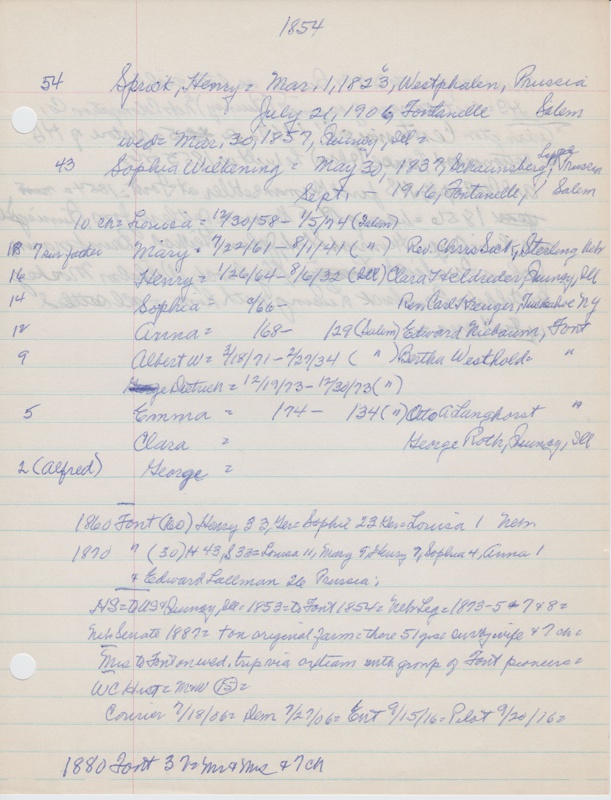 1854
54 Sprick, Henry = Mar. 1, 1823, Westphalen, Prussia
July 21, 1906, Fontanelle Salem
wed = Mar, 30, 1857, Quincy, Ill =
43 Sophia Wilkening = May 30, 1837, Prussia
Sept, - 1916, Fontanelle, Salem
10 ch = Louisa = 12/30/58 - 1/5/74 (Salem)
18 Mary = 7/22/61 - 8/1/41 ( " ) Rev. Chris Sick, Sterling Nebr
16 Henry = 1/26/64 - 8/6/32 (Ill) Clara Quincy, Ill
14 Sophia = 9/66 - Rev. Carl Kreuger, Tuckahoe NY
12 Anna = 168 - 129 (Salem) Edward Niebaum, Font
9 Albert W = 3/18/71 - 2/27/34 ( " ) Bertha Westhold = "
Dietrich = 12/19/73 - 12/30/73 ( " )
5 Emma = 174 - 134 ( " ) Otto A Langhorst "
Clara = George Roth, Quincy, Ill
2 (Alfred) George =
1860 Font (60) Henry 33, Ger = Sophie 23 Ger = Louisa 1 Nebr
1870 " (30) H 43, S 33 = Louisa 11, Mary 9, Henry 7, Sophia 4, Anna 1
& Edward Lallman 26 Prussia,
HS = to US & Quincy, Ill = 1853 = to Font 1854 = Neb Leg = 1873-5 & 7 & 8 =
Neb Senate 1887 = + on original farm = there 51 yrs = survby wife & 7 ch =
Mrs to Font on wed. trip via oxteam with group of Font pioneers =
WC Hist = M&W (15) =
Courier 7/18/06 = Dem 7/27/06 = Ent 9/15/16 = Pilot 9/20/16 =
1880 Font 37 = Mr & Mrs & 7 ch